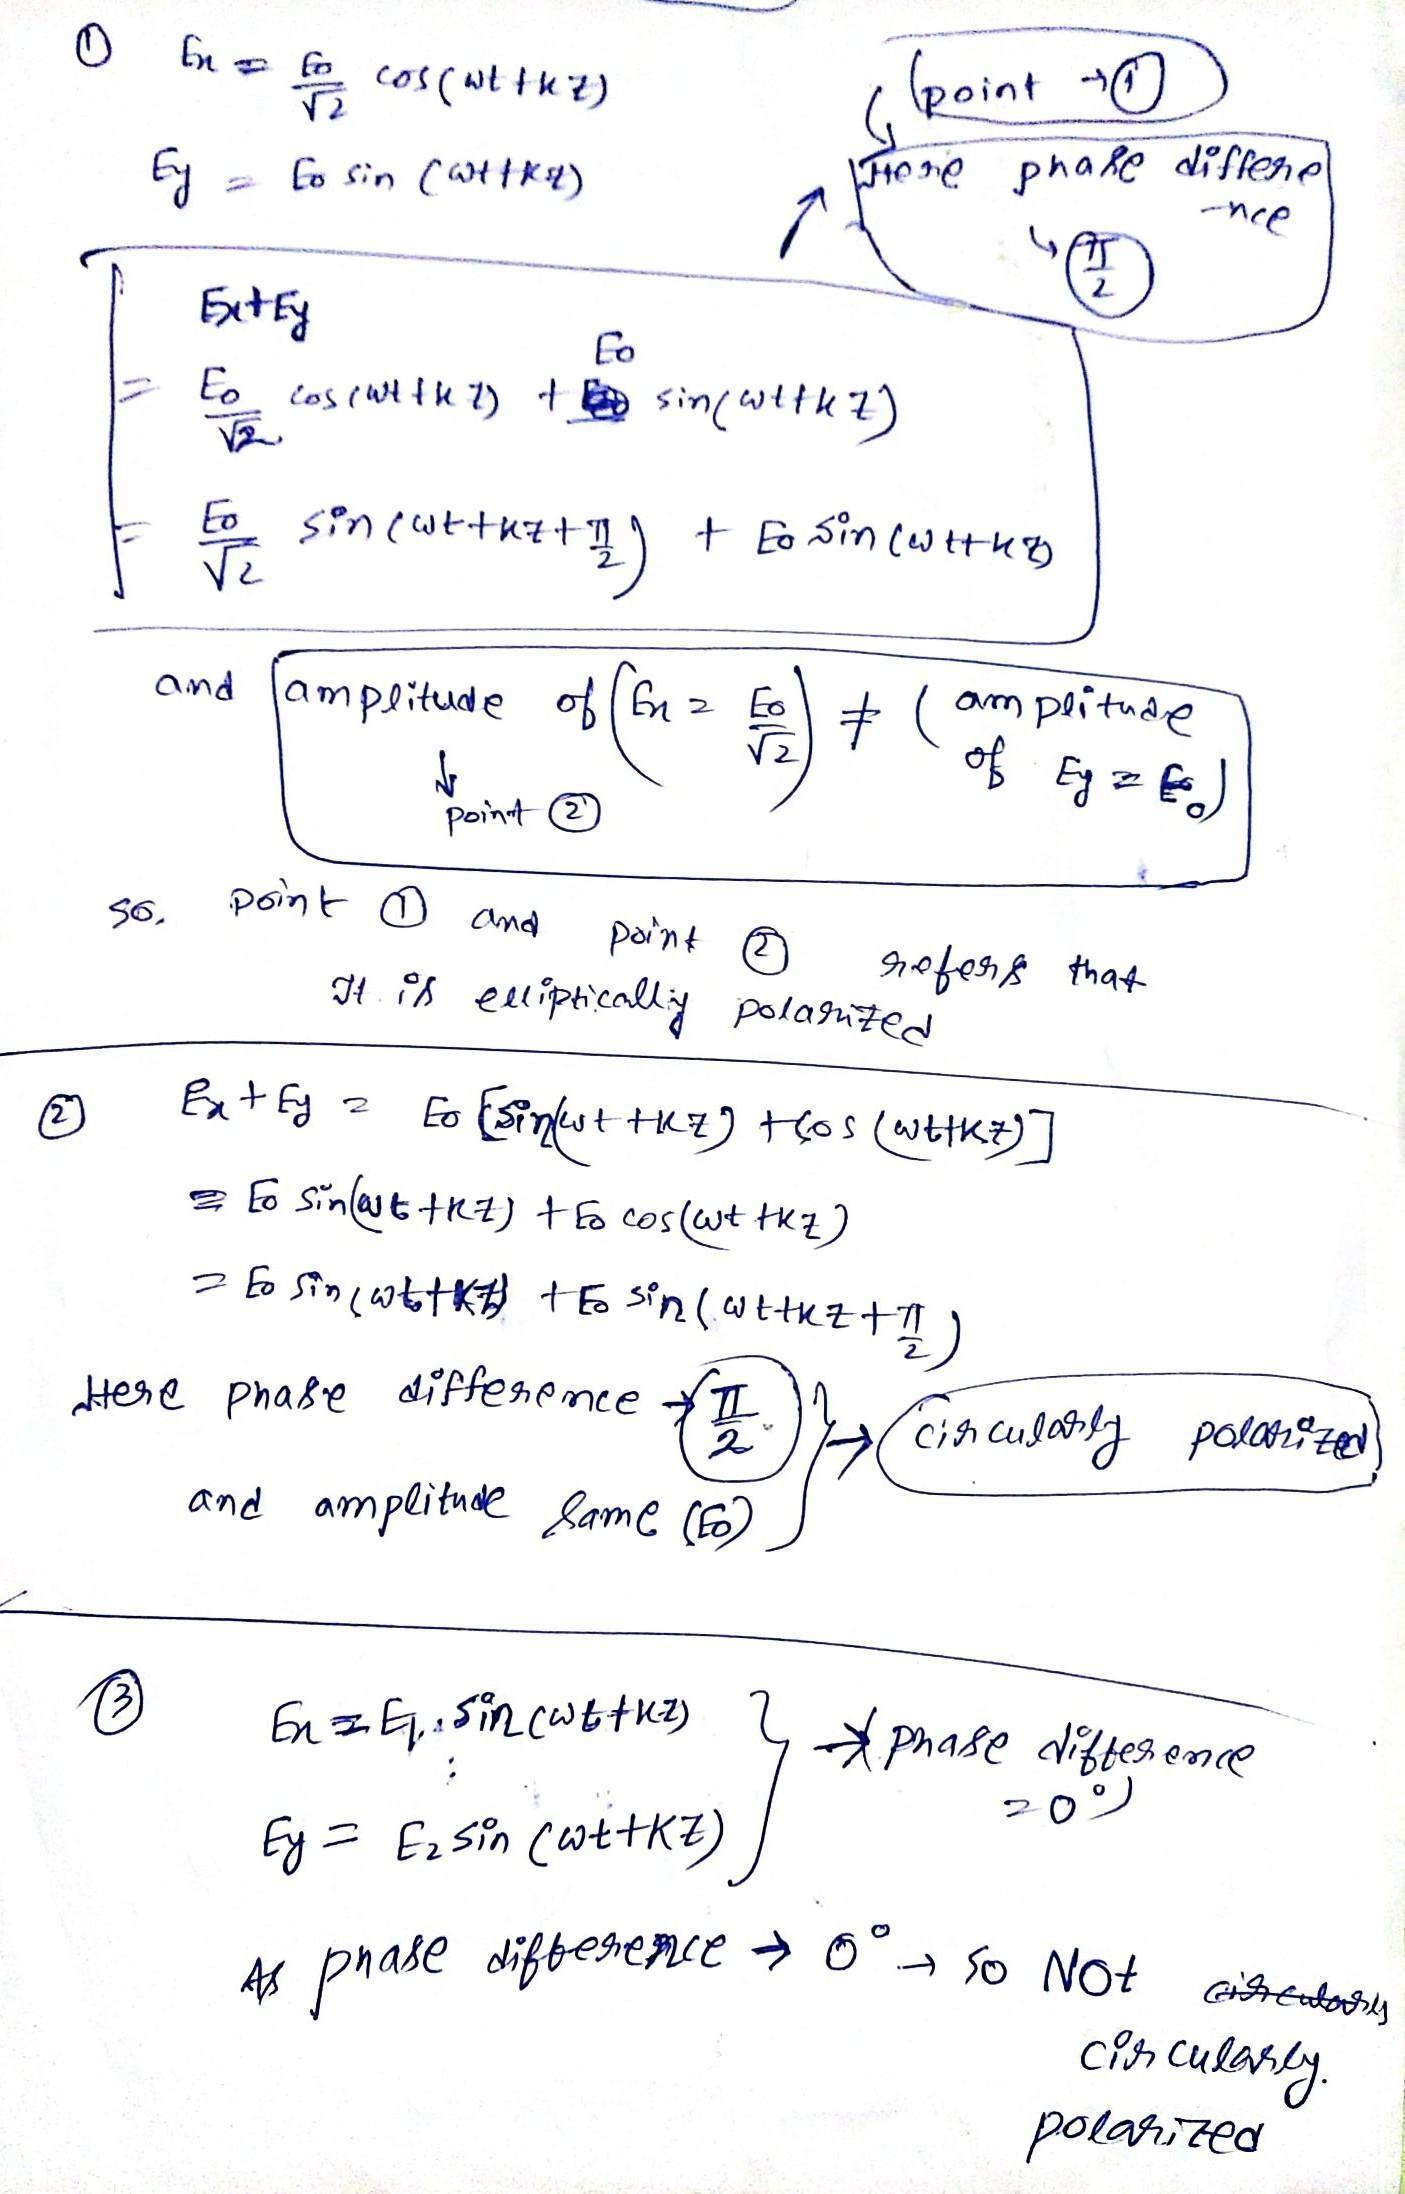 ① Ex = E0/√2 cos(ωt+kz)
Ey = E0 sin (ωt+kz)
(point → ①)
Here phase differe
-nce
↳ π/2
Ex+Ey
= E0/√2 cos(ωt+kz) + E0 sin(ωt+kz)
= E0/√2 sin(ωt+kz+π/2) + E0 sin(ωt+kz)
and amplitude of (Ex = E0/√2) ≠ (amplitude
of Ey = E0)
↓
point ②
so, point ① and point ② refers that
It is elliptically polarized
② Ex + Ey = E0 [sin(ωt+kz) + cos(ωt+kz)]
= E0 sin(ωt+kz) + E0 cos(ωt+kz)
= E0 sin(ωt+kz) + E0 sin(ωt+kz+π/2)
Here phase difference → π/2
and amplitude same (E0)
→ circularly polarized
③ Ex = E1 sin(ωt+kz)
Ey = E2 sin (ωt+kz)
→ phase difference
= 0°
As phase difference → 0° → so NOt circularly
circularly.
polarized